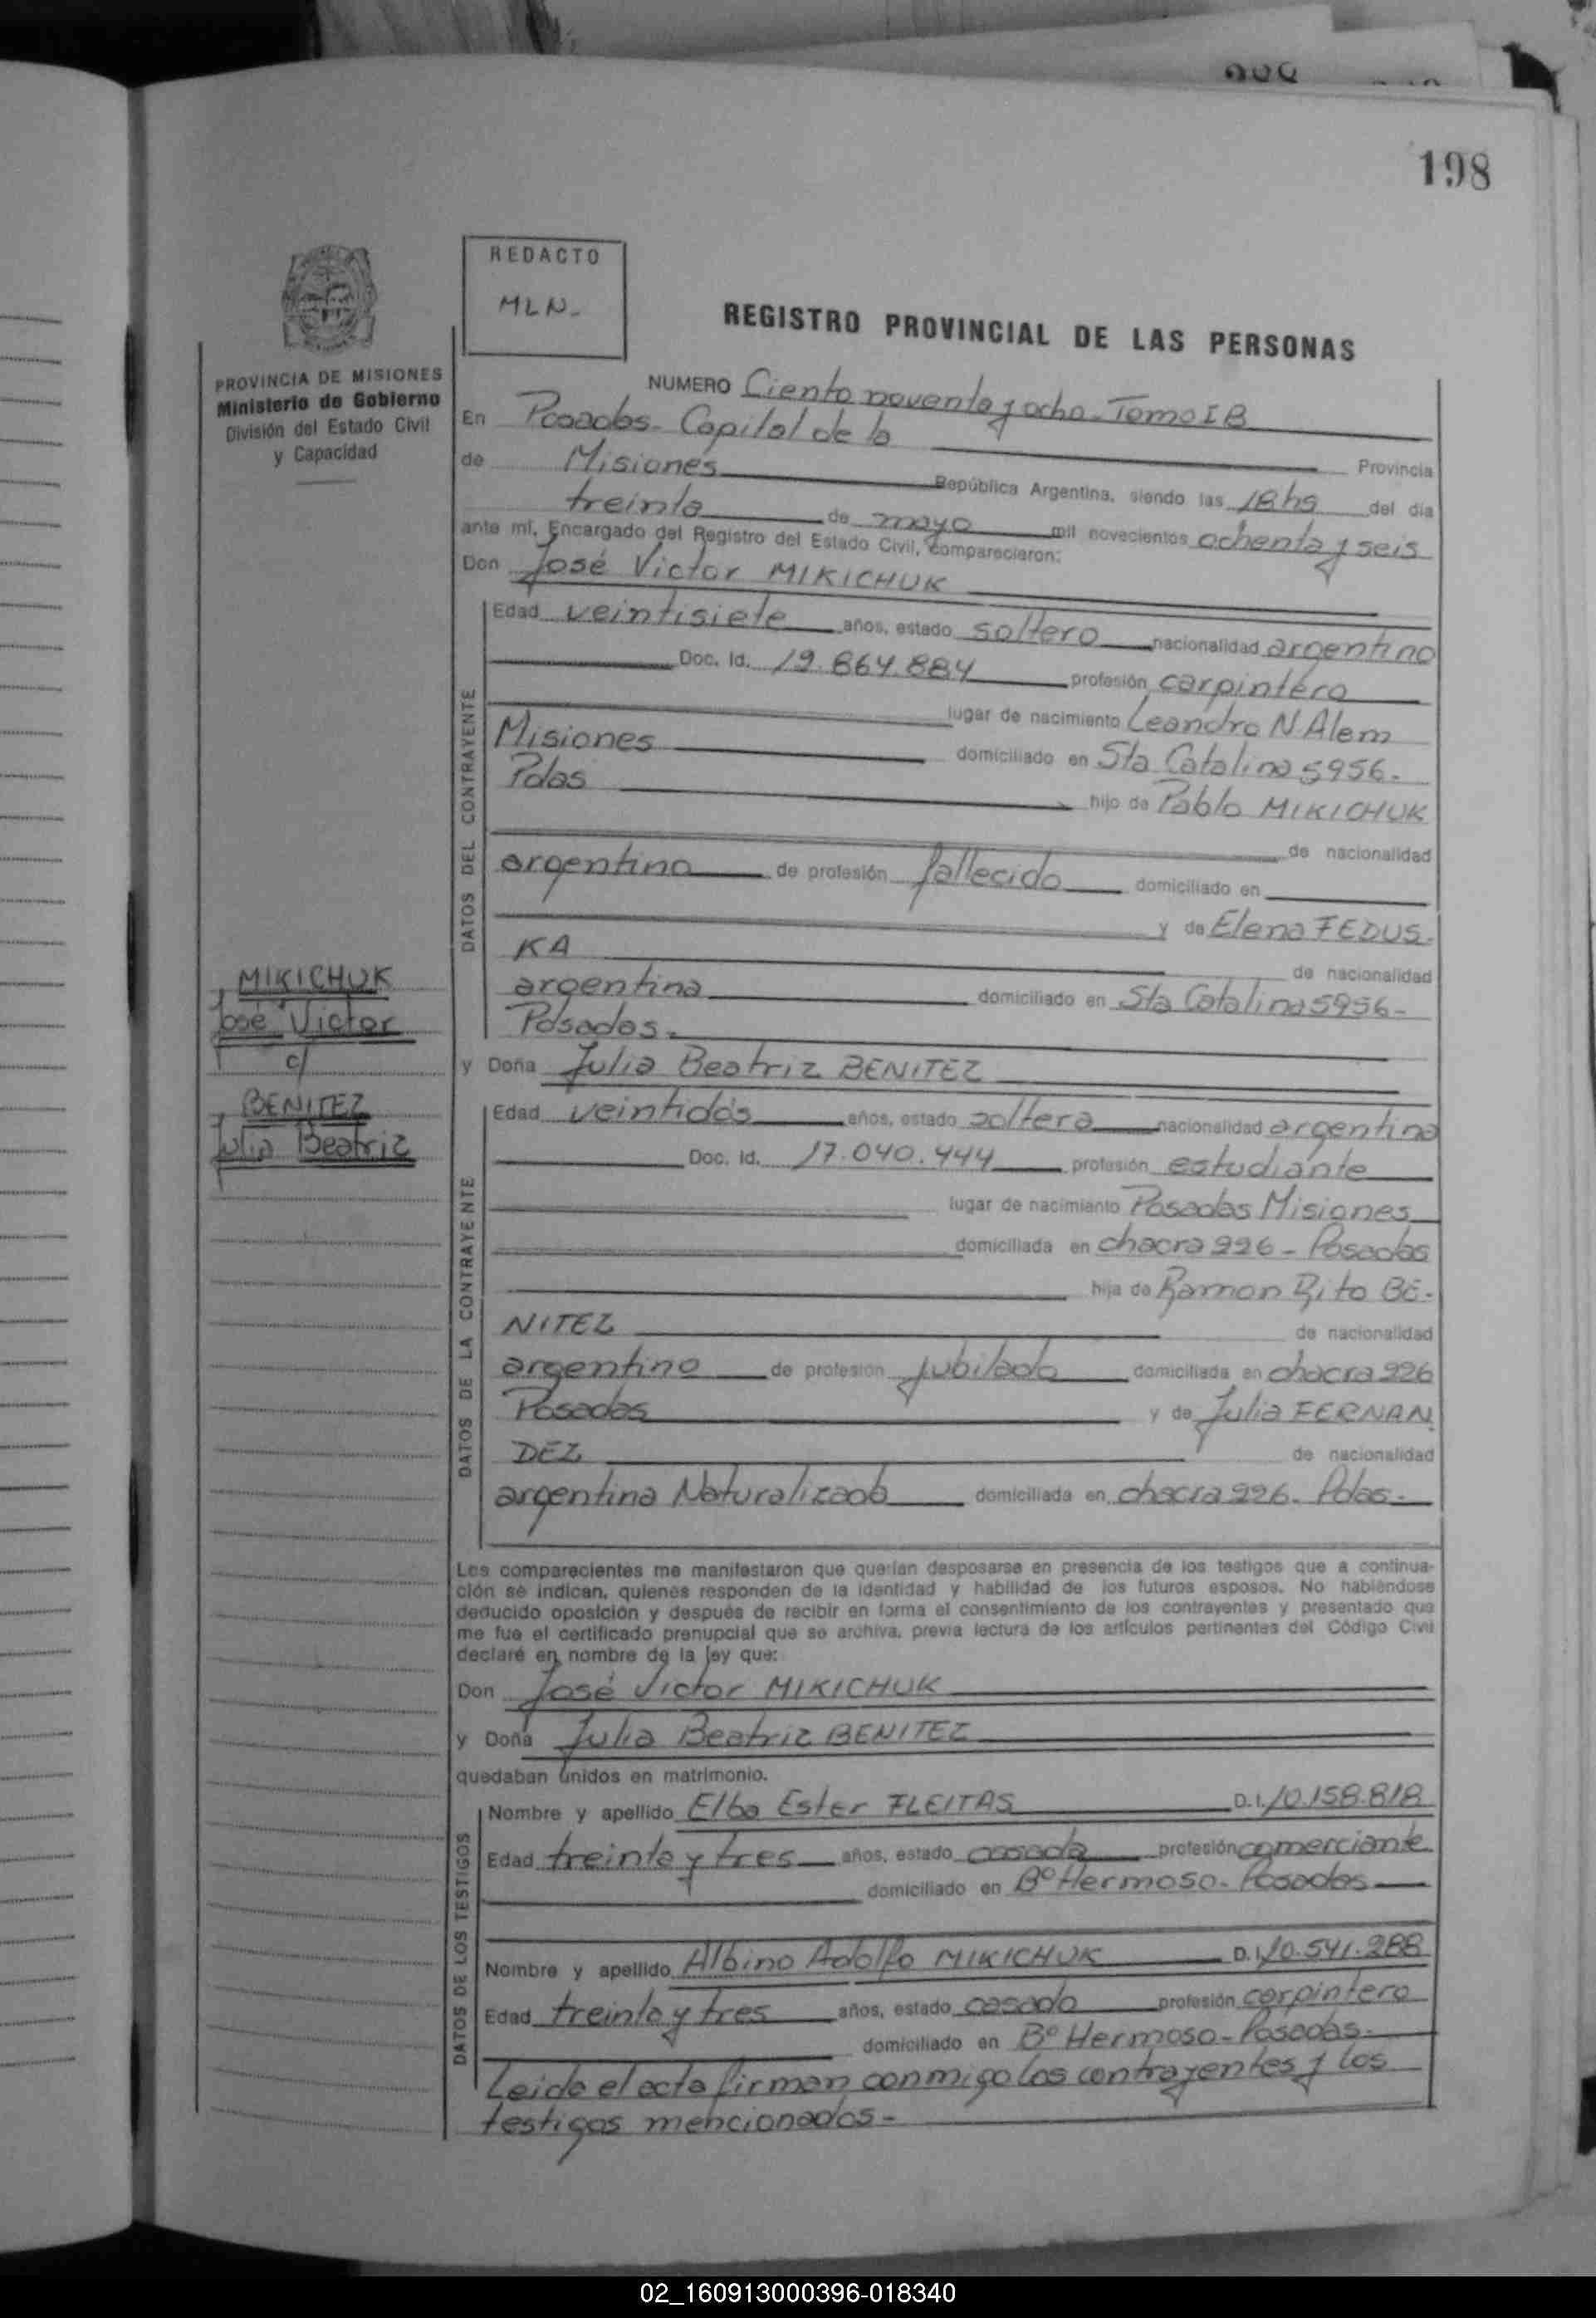 198
REDACTO
MLN-
REGISTRO PROVINCIAL DE LAS PERSONAS
PROVINCIA DE MISIONES
Ministerio de Gobierno
División del Estado Civil
y Capacidad
NUMERO Ciento noventa y ocho - Tomo I B
En Posadas - Capital de la Provincia
de Misiones República Argentina, siendo las 18 hs del día
treinta de mayo mil novecientos ochenta y seis
ante mí, Encargado del Registro del Estado Civil, comparecieron:
Don José Victor MIKICHUK
DATOS DEL CONTRAYENTE
Edad veintisiete años, estado soltero nacionalidad argentino
Doc. Id. 19.864.884 profesión carpintero
lugar de nacimiento Leandro N Alem
Misiones domiciliado en Sta Catalina 5956-
Pdas hijo de Pablo MIKICHUK
de nacionalidad
argentino de profesión fallecido domiciliado en
y de Elena FEDUS-
KA de nacionalidad
argentina domiciliado en Sta Catalina 5956-
Posadas-
MIKICHUK
José Victor
c/
BENITEZ
Julia Beatriz
y Doña Julia Beatriz BENITEZ
DATOS DE LA CONTRAYENTE
Edad veintidós años, estado soltera nacionalidad argentina
Doc. Id. 17.040.444 profesión estudiante
lugar de nacimiento Posadas Misiones
domiciliada en chacra 226 - Posadas
hija de Ramon Rito BE-
NITEZ de nacionalidad
argentino de profesión jubilado domiciliada en chacra 226
Posadas y de Julia FERNAN
DEZ de nacionalidad
argentina Naturalizada domiciliada en chacra 226- Pdas-
Los comparecientes me manifestaron que querían desposarse en presencia de los testigos que a continua-
ción se indican, quienes responden de la identidad y habilidad de los futuros esposos. No habiéndose
deducido oposición y después de recibir en forma el consentimiento de los contrayentes y presentado que
me fue el certificado prenupcial que se archiva, previa lectura de los artículos pertinentes del Código Civil
declaré en nombre de la ley que:
Don José Victor MIKICHUK
y Doña Julia Beatriz BENITEZ
quedaban unidos en matrimonio.
DATOS DE LOS TESTIGOS
Nombre y apellido Elba Ester FLEITAS D.I. 10.158.818
Edad treinta y tres años, estado casada profesión comerciante
domiciliado en Bº Hermoso- Posadas
Nombre y apellido Albino Adolfo MIKICHUK D.I. 10.541.288
Edad treinta y tres años, estado casado profesión carpintero
domiciliado en Bº Hermoso- Posadas-
Leida el acta firman conmigo los contrayentes y los
testigos mencionados-
02_160913000396-018340